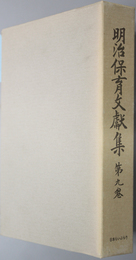 明治保育文献集
第九巻